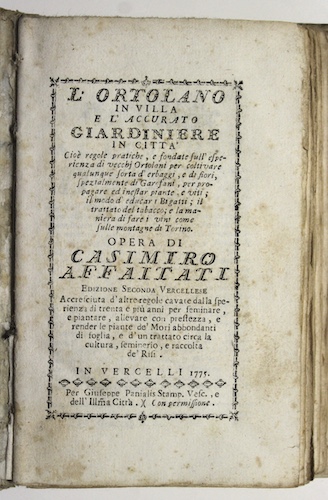 L' ORTOLANO
IN VILLA
E L' ACCURATO
GIARDINIERE
IN CITTA'
Cioè regole pratiche, e fondate sull' espe-
rienza di vecchi Ortolani per coltivare
qualunque sorta d' erbaggi, e di fiori,
spezialmente di Garofani, per pro-
pagare ed inestar piante, e viti;
il modo d' educar i Bigatti; il
trattato del tabacco; e la ma-
niera di fare i vini come
sulle montagne di Torino.
OPERA DI
CASIMIRO
AFFAITATI
EDIZIONE SECONDA VERCELLESE
Accresciuta d' altre regole cavate dalla spe-
rienza di trenta e più anni per seminare,
e piantare, allevare con prestezza, e
render le piante de' Mori abbondanti
di foglia, e d' un trattato circa la
cultura, seminerio, e raccolta
de' Risi.
IN VERCELLI 1775.
Per Giuseppe Panialis Stamp. Vesc., e
dell' Illma Città. )( Con permissione.